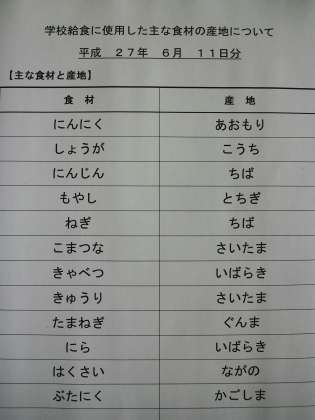 学校給食に使用した主な食材の産地について
平成 27年 6月 11日分
【主な食材と産地】
食 材 産 地
にんにく あおもり
しょうが こうち
にんじん ちば
もやし とちぎ
ねぎ ちば
こまつな さいたま
きゃべつ いばらき
きゅうり さいたま
たまねぎ ぐんま
にら いばらき
はくさい ながの
ぶたにく かごしま